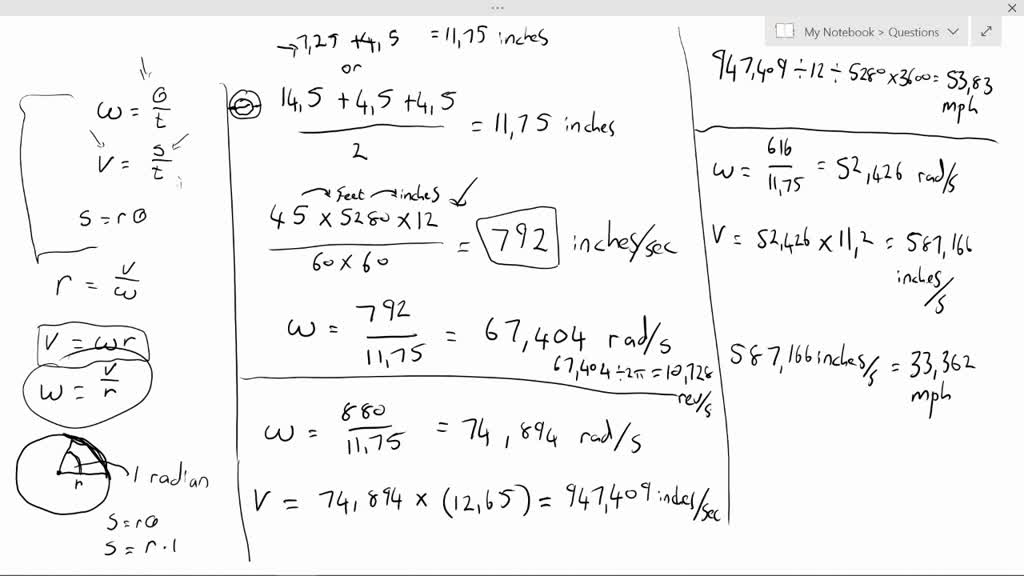 My Notebook > Questions
ω = θ/t
V = s/t
s = rθ
r = v/ω
V = ωr
ω = v/r
1 radian
r
S = rθ
S = r·1
→7,25 + 4,5 = 11,75 inches
or
(14,5 + 4,5 + 4,5)/2 = 11,75 inches
feet inches
(45 × 5280 × 12)/(60 × 60) = 792 inches/sec
ω = 792/11,75 = 67,404 rad/s
67,404 ÷ 2π = 10,728 rev/s
ω = 880/11,75 = 74,894 rad/s
V = 74,894 × (12,65) = 947,409 inches/sec
947,409 ÷ 12 ÷ 5280 × 3600 = 53,83
mph
ω = 616/11,75 = 52,426 rad/s
V = 52,426 × 11,2 = 587,166
inches/s
587,166 inches/s = 33,362
mph